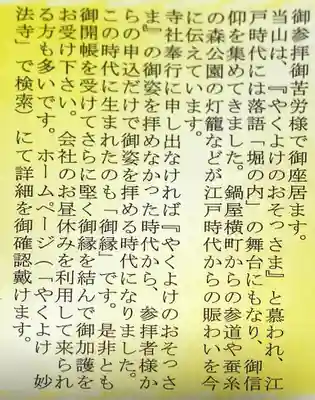 御参拝御苦労様で御座居ます。
当山は、『やくよけのおそっさま』と慕われ、江
戸時代には落語「堀の内」の舞台にもなり、御信
仰を集めてきました。鍋屋横町からの参道や蚕糸
の森公園の灯籠などが江戸時代からの賑わいを今
に伝えています。
寺社奉行に申し出なければ『やくよけのおそっさ
ま』の御姿を拝めなかった時代から、参拝者様か
らの申込だけで御姿を拝める時代になりました。
この時代に生まれたのも「御縁」です。是非とも
御開帳を受けてさらに堅く御縁を結んで御加護を
お受け下さい。会社のお昼休みを利用して来られ
る方も多いです。ホームページ（「やくよけ　妙
法寺」で検索）にて詳細を御確認戴けます。